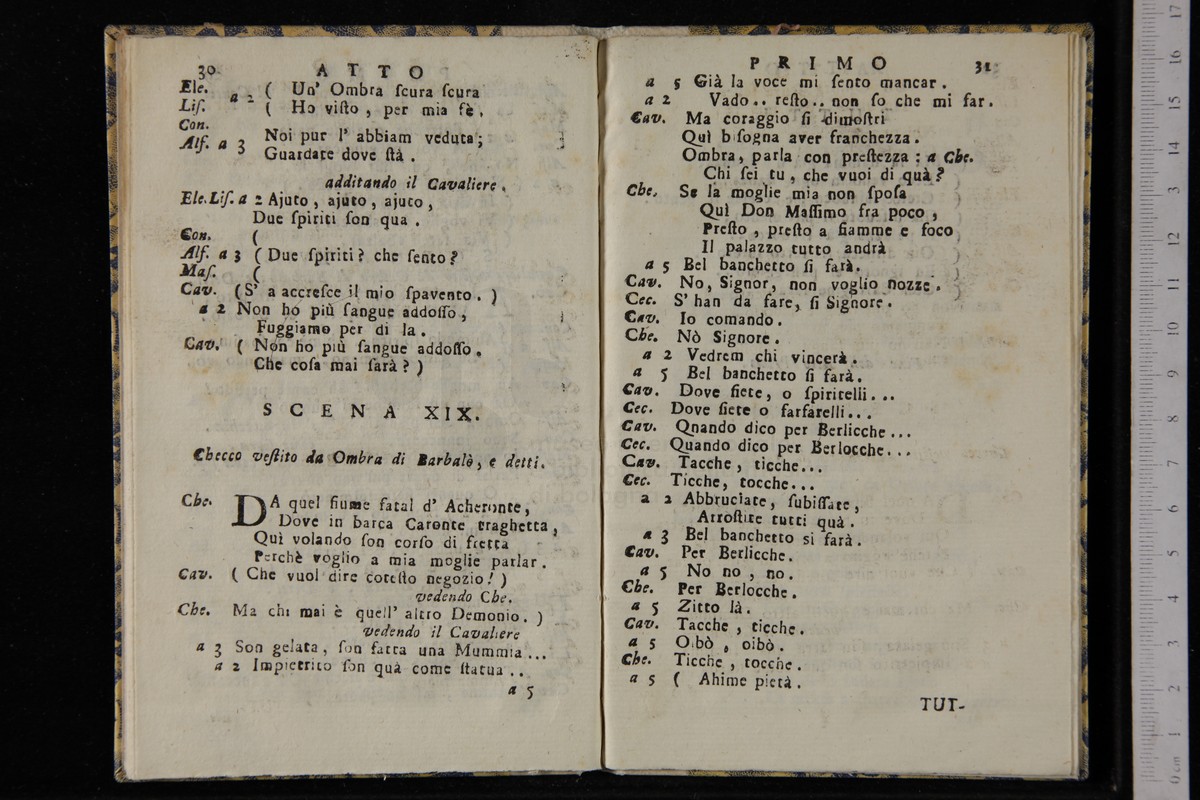 30 ATTO
Ele. a 2 ( Un' Ombra ſcura ſcura
Liſ. ( Ho viſto , per mia fè .
Con.
Alſ. a 3 Noi pur l' abbiam veduta ;
Guardate dove ſtà .
additando il Cavaliere .
Ele. Liſ. a 2 Ajuto , ajuto , ajuto ,
Due ſpiriti ſon qua .
Con. (
Alſ. a 3 ( Due ſpiriti ? che ſento ?
Maſ. (
Cav. ( S' a accreſce il mio ſpavento . )
a 2 Non ho più ſangue addoſſo ,
Fuggiamo per di la .
Cav. ( Non ho più ſangue addoſſo .
Che coſa mai ſarà ? )
SCENA XIX.
Checco veſtito da Ombra di Barbalè , e detti .
Che. DA quel fiume fatal d' Acheronte ,
Dove in barca Caronte traghetta ,
Quì volando ſon corſo di fretta
Perchè voglio a mia moglie parlar .
Cav. ( Che vuol dire coteſto negozio ! )
vedendo Che.
Che. Ma chi mai è quell' altro Demonio . )
vedendo il Cavaliere
a 3 Son gelata , ſon fatta una Mummia ...
a 2 Impietrito ſon quà come ſtatua ..
a 5
PRIMO 31
a 5 Già la voce mi ſento mancar .
a 2 Vado .. reſto .. non ſo che mi far .
Cav. Ma coraggio ſi dimoſtri
Quì biſogna aver franchezza .
Ombra , parla con preſtezza : a Che.
Chi ſei tu , che vuoi di quà ?
Che. Se la moglie mia non ſpoſa
Quì Don Maſſimo fra poco ,
Preſto , preſto a fiamme e foco
Il palazzo tutto andrà
a 5 Bel banchetto ſi farà .
Cav. No , Signor , non voglio nozze .
Cec. S' han da fare , ſi Signore .
Cav. Io comando .
Che. Nò Signore .
a 2 Vedrem chi vincerà .
a 5 Bel banchetto ſi farà .
Cav. Dove ſiete , o ſpiritelli ...
Cec. Dove ſiete o farfarelli ...
Cav. Qnando dico per Berlicche ...
Cec. Quando dico per Berlocche ...
Cav. Tacche , ticche ...
Cec. Ticche , tocche ...
a 2 Abbruciate , ſubiſſate ,
Arroſtite tutti quà .
a 3 Bel banchetto si farà .
Cav. Per Berlicche .
a 5 No no , no .
Che. Per Berlocche .
a 5 Zitto là .
Cav. Tacche , ticche .
a 5 Oibò , oibò .
Che. Ticche , tocche .
a 5 ( Ahime pietà .
TUT-
17
16
15
14
13
12
11
10
9
8
7
6
5
4
3
2
1
0 cm